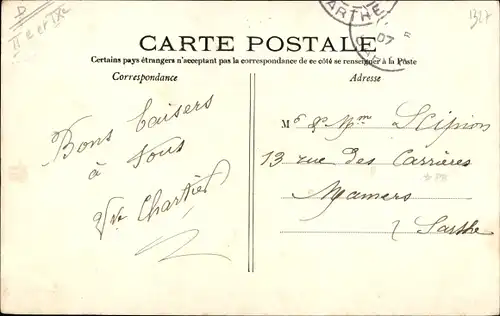 D
II e et IXe
ARTHE
07
1327
CARTE POSTALE
Certains pays étrangers n'acceptant pas la correspondance de ce côté se renseigner à la Poste
Correspondance
Adresse
Bons baisers
à Tous
Vve Chartier
Mr & Mme Scipion
13 rue des Carrières
Mamers
Sarthe